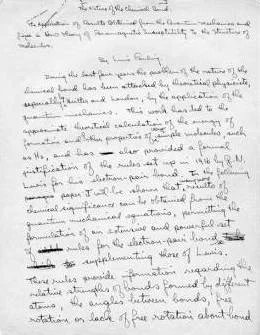 The Nature of the Chemical Bond.
The Application of Results Obtained from the Quantum Mechanics and
from a New Theory of Paramagnetic Susceptibility to the Structure of
Molecules.
By Linus Pauling
During the last four years the problem of the nature of the
chemical bond has been attacked by theoretical physicists,
especially Heitler and London, by the application of the
quantum mechanics. This work has led to the
approximate theoretical calculation of the energy of
formation and other properties of simple molecules, such
as H2, and has also provided a formal
justification of the rules set up in 1916 by G. N.
Lewis for his electron-pair bond. In the following
paper it will be shown that results of
chemical significance can be obtained from the
quantum mechanical equations, permitting the
formulation of an extensive and powerful set
of rules for the electron-pair bond
supplementing those of Lewis.
These rules provide information regarding the
relative strengths of bonds formed by different
atoms, the angles between bonds, free
rotation or lack of free rotation about bond